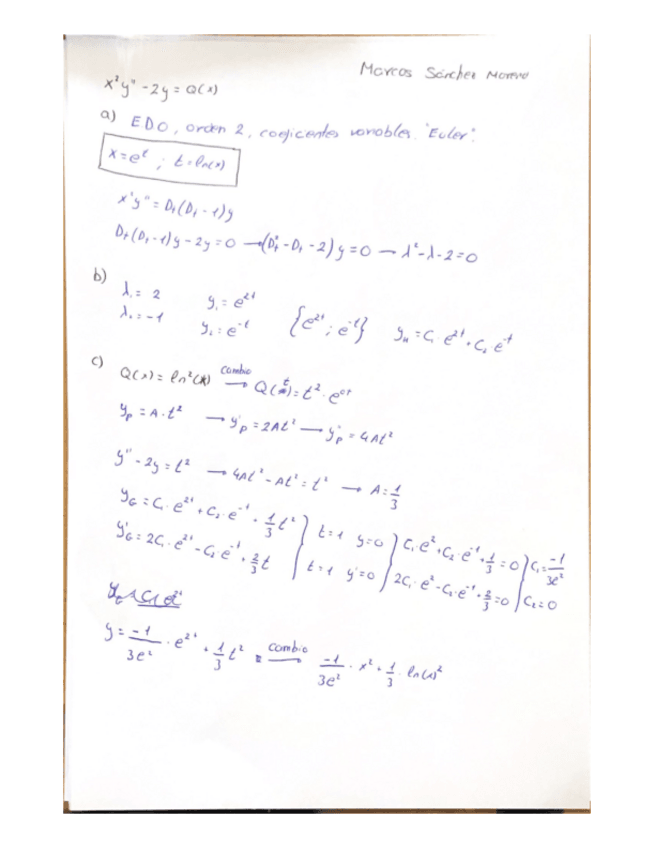 Marcos Sánchez Moreno
x²y" - 2y = Q(x)
a) EDO, orden 2, coeficientes variables. "Euler".
x = e^t ; t = ln(x)
x²y" = D_t(D_t - 1)y
D_t(D_t - 1)y - 2y = 0 → (D_t² - D_t - 2)y = 0 → λ² - λ - 2 = 0
b) λ₁ = 2 y₁ = e^2t
λ₂ = -1 y₂ = e^-t {e^2t ; e^-t} y_H = C₁ e^2t + C₂ e^-t
c) Q(x) = ln²(x) cambio → Q(t) = t² · e^0t
y_p = A · t² → y'_p = 2At² → y"_p = 4At²
y" - 2y = t² → 4At² - At² = t² → A = 1/3
y_G = C₁ · e^2t + C₂ · e^-t + 1/3 t² } t=1 y=0 } C₁ · e² + C₂ · e^-1 + 1/3 = 0 } C₁ = -1/3e²
y'_G = 2C₁ · e^2t - C₂ · e^-t + 2/3 t } t=1 y'=0 } 2C₁ · e² - C₂ · e^-1 + 2/3 = 0 } C₂ = 0
y = -1/3e² · e^2t + 1/3 t² cambio → -1/3e² · x² + 1/3 · ln(x)²